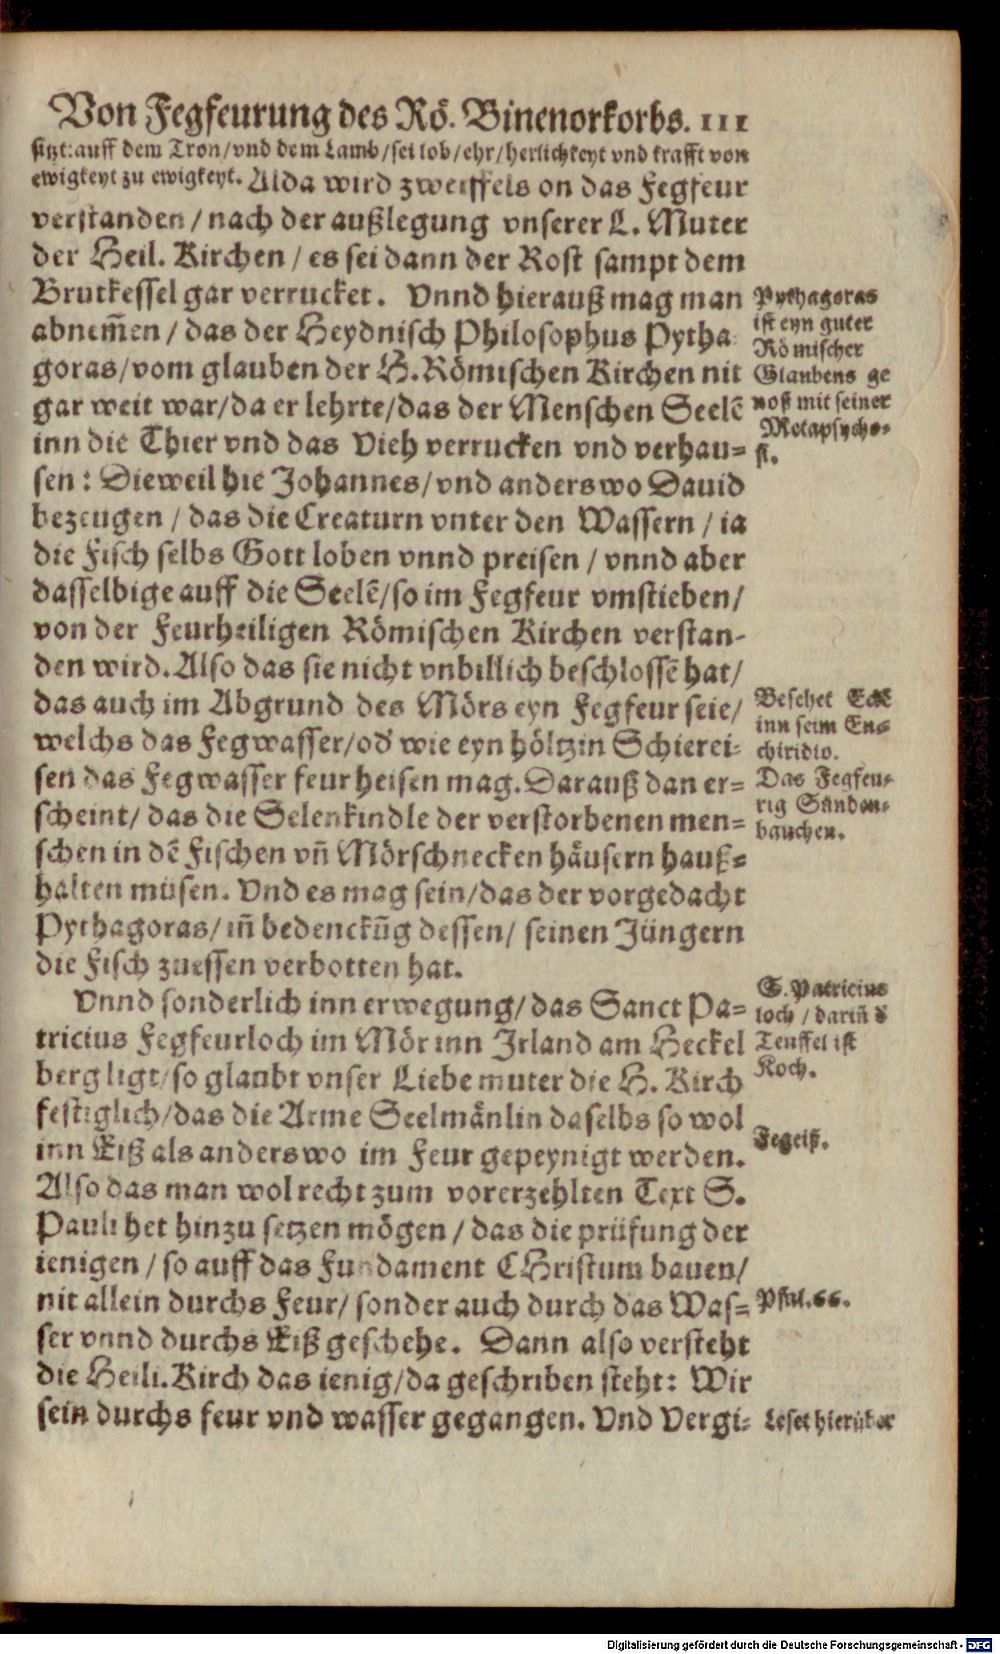 Von Fegfeurung des Rö. Binenorkorbs. 111
sitzt: auff dem Tron/vnd dem Lamb/sei lob/ehr/herlichkeyt vnd krafft von
ewigkeyt zu ewigkeyt. Alda wird zweiffels on das Fegfeur
verstanden/nach der außlegung vnserer L. Muter
der Heil. Kirchen/es sei dann der Rost sampt dem
Brutkessel gar verrucket. Vnnd hierauß mag man
abnem̃en/das der Heydnisch Philosophus Pytha
goras/vom glauben der H. Römischen Kirchen nit
gar weit war/da er lehrte/das der Menschen Seelẽ
inn die Thier vnd das Vieh verrucken vnd verhau=
sen: Dieweil hie Johannes/vnd anderswo Dauid
bezeugen/das die Creaturn vnter den Wassern/ia
die Fisch selbs Gott loben vnnd preisen/vnnd aber
dasselbige auff die Seelẽ/so im Fegfeur vmstieben/
von der Feurheiligen Römischen Kirchen verstan-
den wird. Also das sie nicht vnbillich beschlossẽ hat/
das auch im Abgrund des Mörs eyn Fegfeur seie/
welchs das Fegwasser/od' wie eyn höltzin Schierei-
sen das Fegwasser feur heisen mag. Darauß dan er=
scheint/das die Selenkindle der verstorbenen men=
schen in dẽ Fischen vñ Mörschnecken häusern hauß=
halten müsen. Vnd es mag sein/das der vorgedacht
Pythagoras/iñ bedenckũg dessen/seinen Jüngern
die Fisch zuessen verbotten hat.
Vnnd sonderlich inn erwegung/das Sanct Pa=
tricius Fegfeurloch im Mör inn Irland am Heckel
berg ligt/so glaubt vnser Liebe muter die H. Kirch
festiglich/das die Arme Seelmänlin daselbs so wol
inn Eiß als anderswo im Feur gepeynigt werden.
Also das man wol recht zum vorerzehlten Text S.
Pauli het hinzu setzen mögen/das die prüfung der
ienigen/so auff das Fundament CHristum bauen/
nit allein durchs Feur/sonder auch durch das Was=
ser vnnd durchs Eiß geschehe. Dann also versteht
die Heili. Kirch das ienig/da geschriben steht: Wir
sein durchs feur vnd wasser gegangen. Vnd Vergi=
Pythagoras
ist eyn guter
Römischer
Glaubens ge
noß mit seiner
Metapsycho=
si.
Besehet Eck
inn seim En=
chiridio.
Das Fegfeu=
rig Sanden=
bauchen.
S. Patricius
loch/dariñ d'
Teuffel ist
Koch.
Fegeiß.
Psal. 66.
Leset hierüber
Digitalisierung gefördert durch die Deutsche Forschungsgemeinschaft - DFG